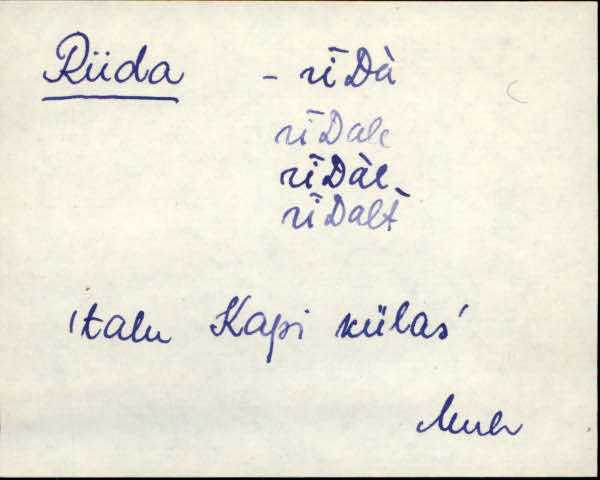 Riida - rīDà
rīDale
rīDàl
rīDalt̀
'talu Kapi külas'
Muh